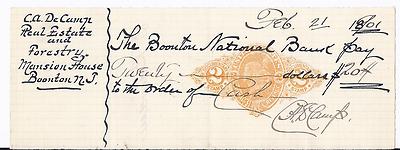 C.A. DeCamp
Real Estate
and
Forestry.
Mansion House
Boonton N.J.
Feb 21 1901
The Boonton National Bank Pay
Twenty dollars $20
to the order of Cash
C.A. DeCamp
2